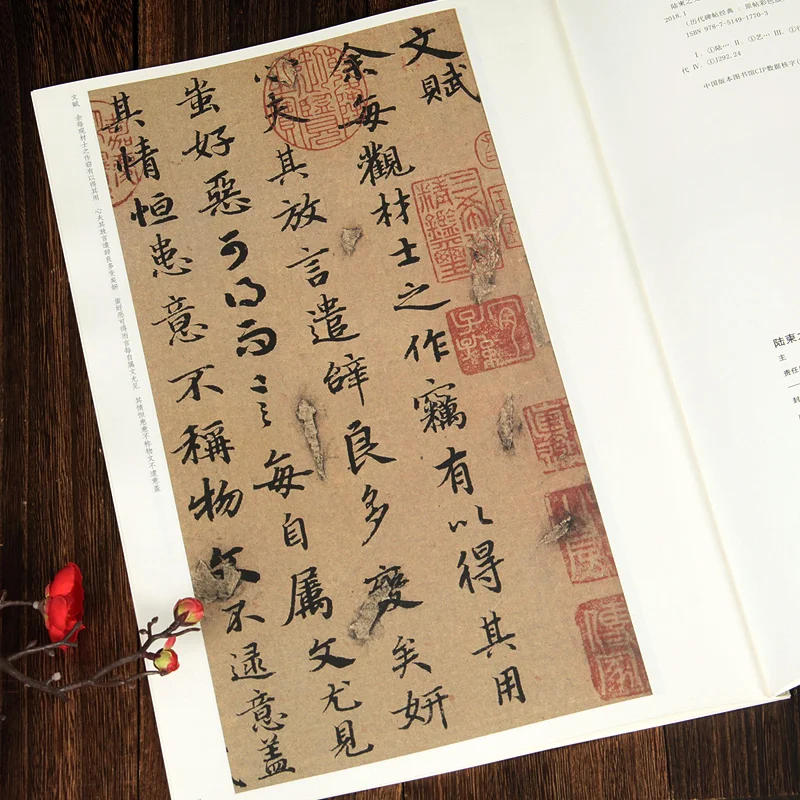 文賦
余每觀材士之作竊有以得其用
心夫其放言遣辤良多變矣妍
蚩好惡可得而言每自属文尤見
其情恒患意不稱物文不逮意蓋
文赋 余每观材士之作窃有以得其用 心夫其放言遣辞良多变矣妍 蚩好恶可得而言每自属文尤见 其情恒患意不称物文不逮意盖
陆柬之文
2018.1
(历代碑帖经典:原帖彩色放
ISBN 978-7-5149-1770-3
Ⅰ. ①陆… Ⅱ. ①艺… Ⅲ. ①
代 Ⅳ. ①J292.24
中国版本图书馆CIP数据核字(
陆柬之
主
责任
封